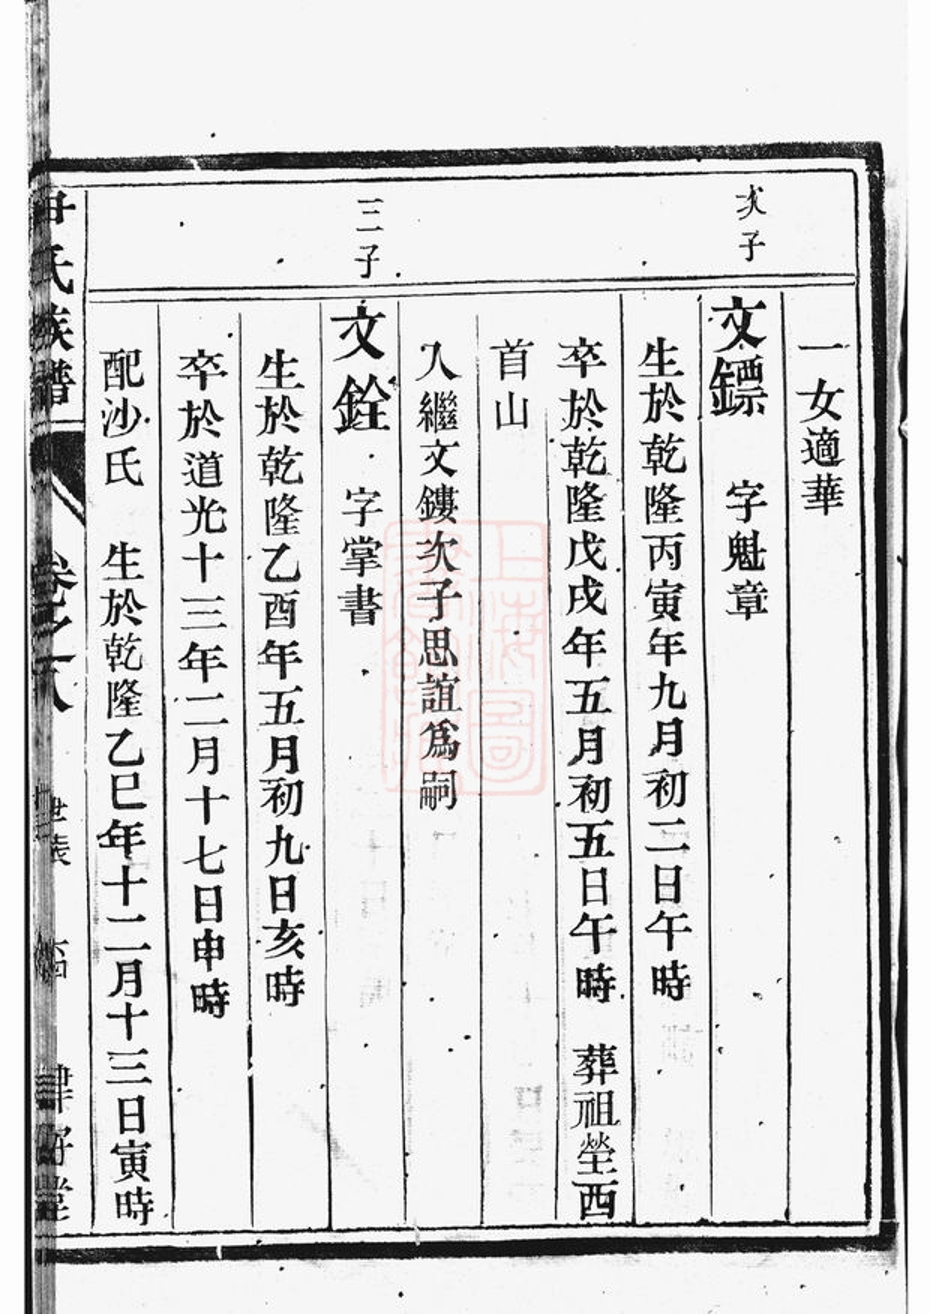 一女適華
次子
文鏢 字魁章
生於乾隆丙寅年九月初二日午時
卒於乾隆戊戌年五月初五日午時 葬祖塋西
首山
入繼文鏤次子思誼爲嗣
三子
文銓 字掌書
生於乾隆乙酉年五月初九日亥時
卒於道光十三年二月十七日申時
配沙氏 生於乾隆乙巳年十二月十三日寅時
氏族譜
卷之八
世表
上海圖